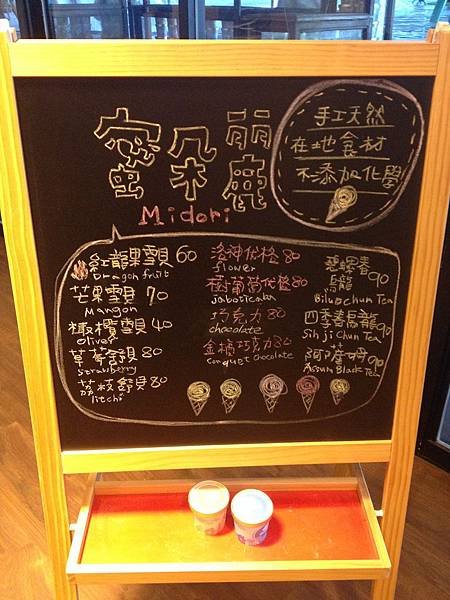 蜜朵麗
Midori
手工天然
在地食材
不添加化學
紅龍果雪貝 60
Dragon fruit
芒果雪貝 70
Mangon
橄欖雪貝 40
Oliver
草莓雪貝 80
Strawberry
荔枝雪貝 80
litchi
洛神优格 80
flower
樹葡萄优格 80
jaboticaba
巧克力 80
chocolate
金橘巧克力 80
Conquet chocolate
碧螺春
烏龍 90
Biluo Chun Tea
四季春烏龍 90
Sih ji Chun Tea
阿薩姆 90
Assam Black Tea